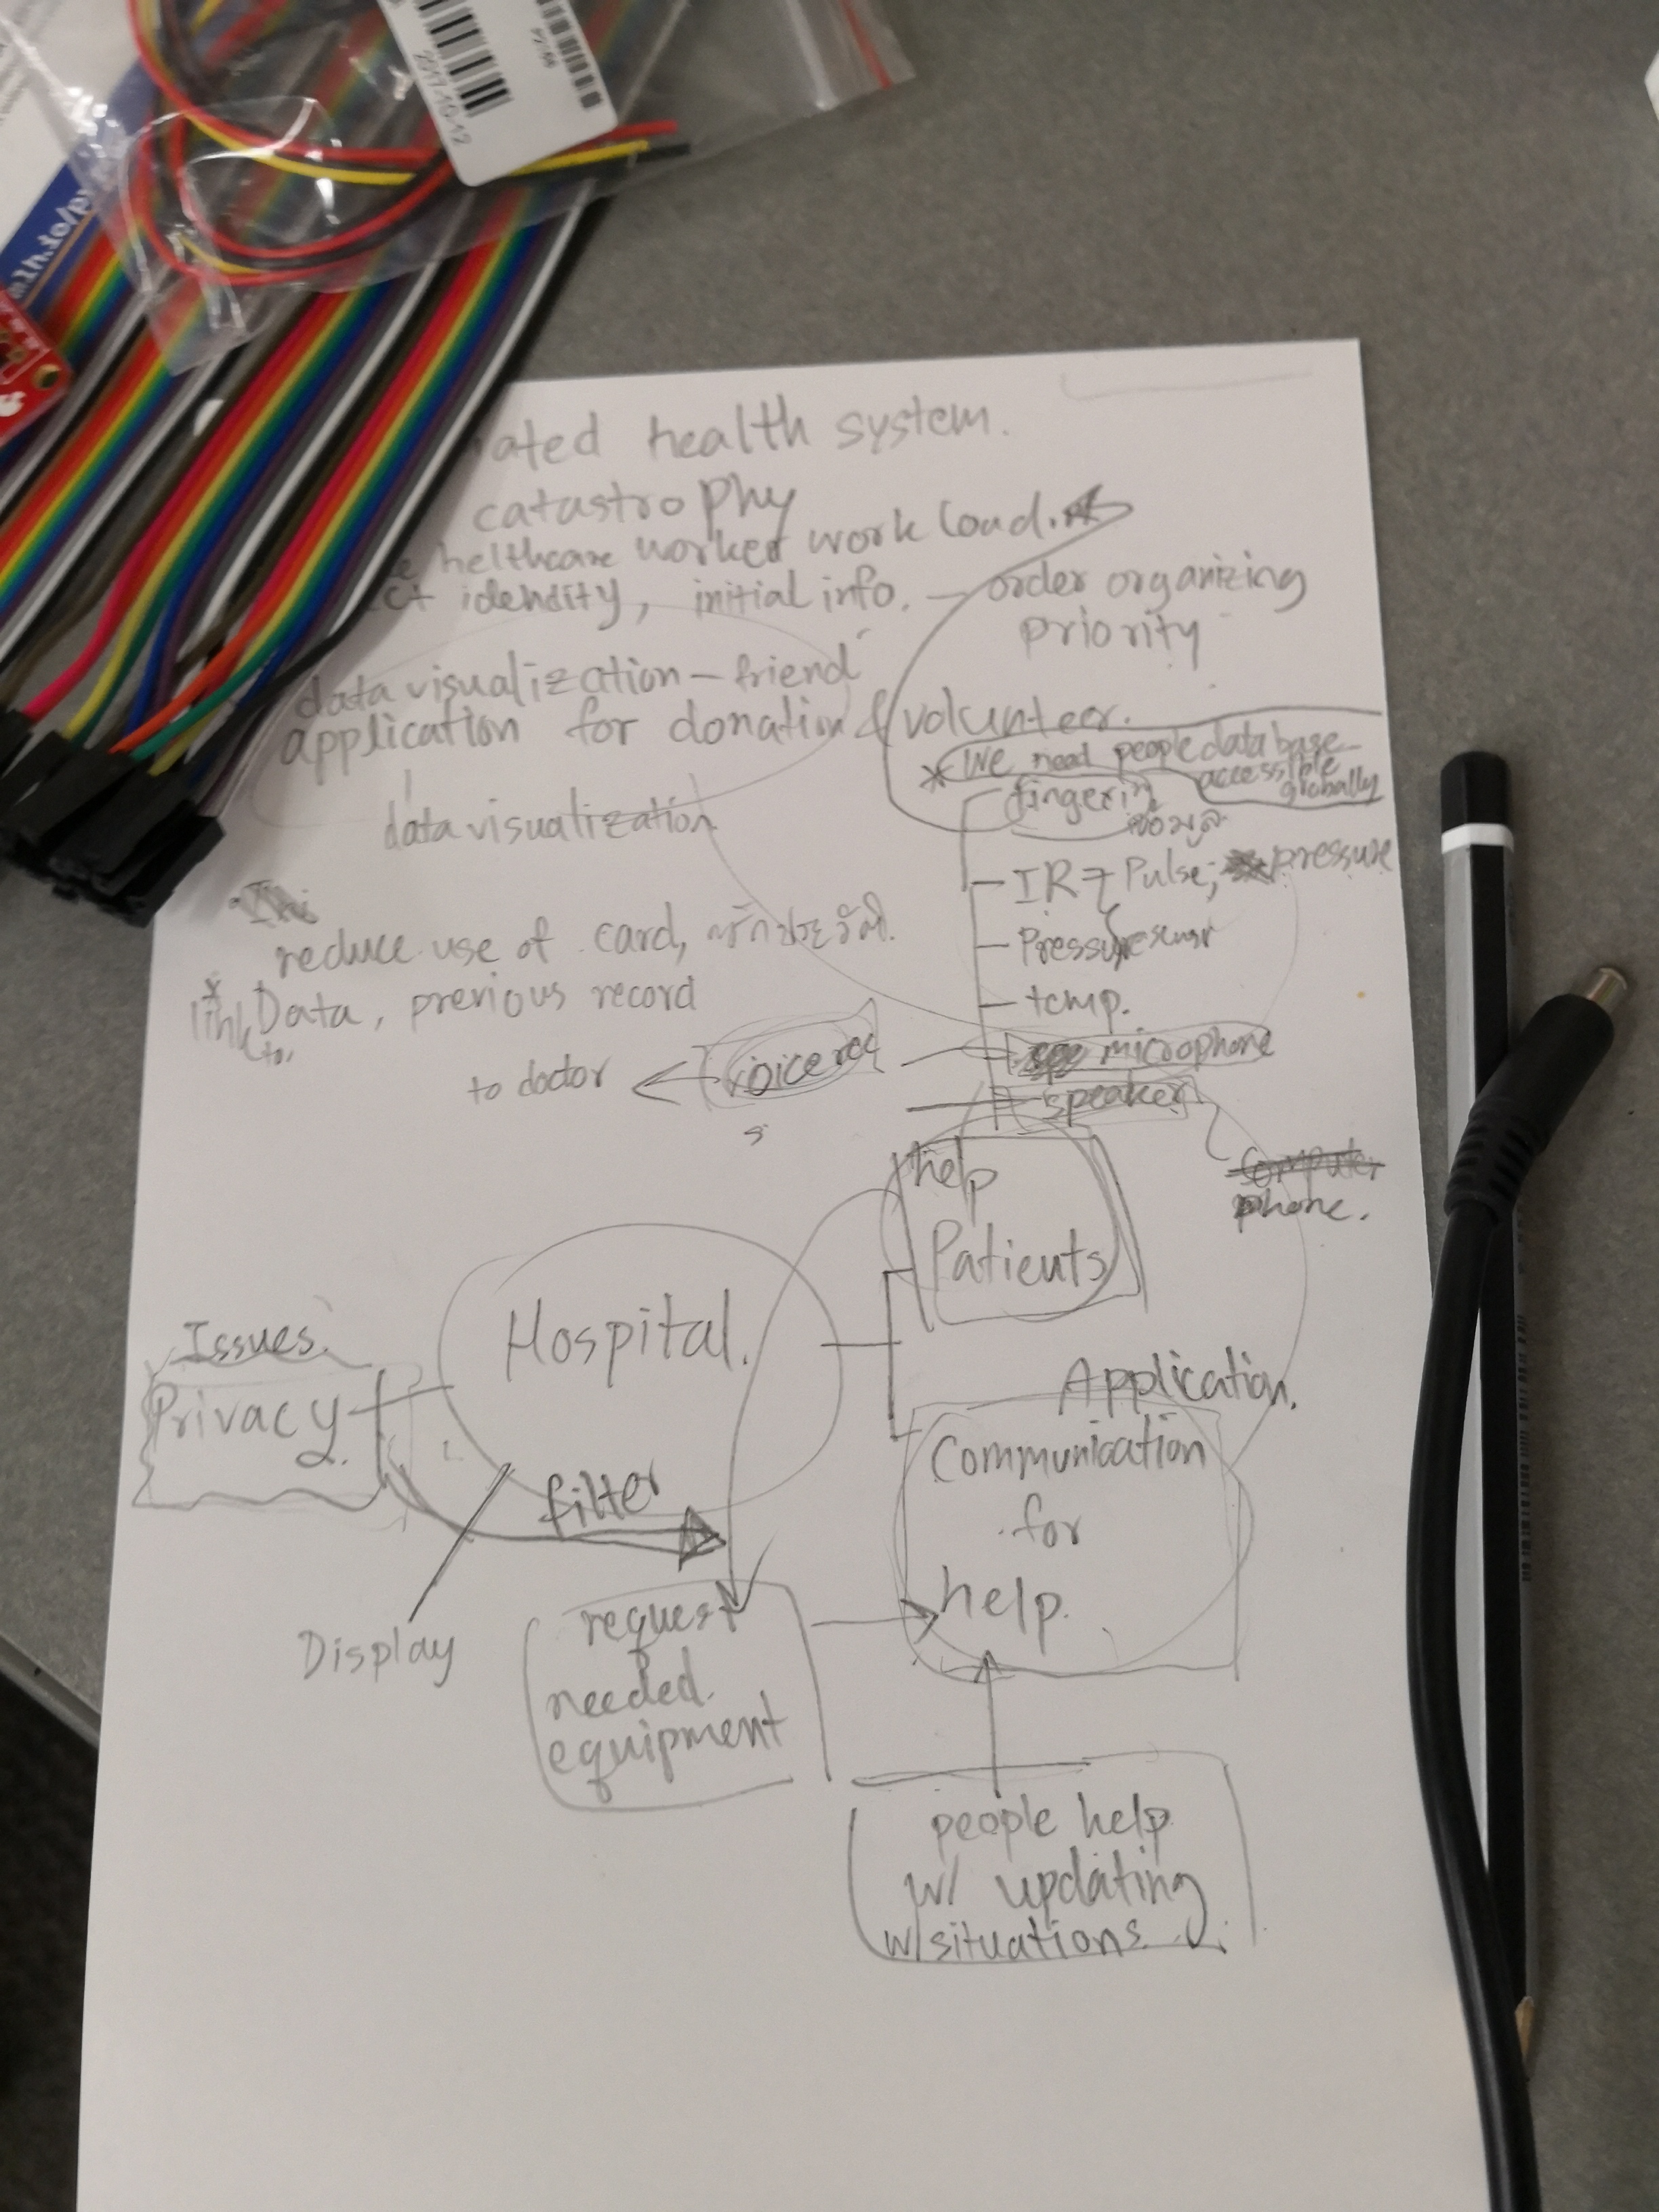 2017-10-12
ated health system.
catastrophy
e helthcare worker work load.
ct identity, initial info. — order organizing
priority
data visualization – friend
application for donation & volunteer.
* We need people database
accessible
globally
data visualization
ข้อมูล
IR Pulse; pressure
reduce use of card, ซักประวัติ.
Pressure sensor
link
to,
Data, previous record
temp.
microphone
to doctor
voice rec
speaker
computer
phone.
help
Patients
Hospital.
Issues.
Privacy
Application.
Communication
for
help.
filter
Display
request
needed.
equipment
people help
w/ updating
w/situations.